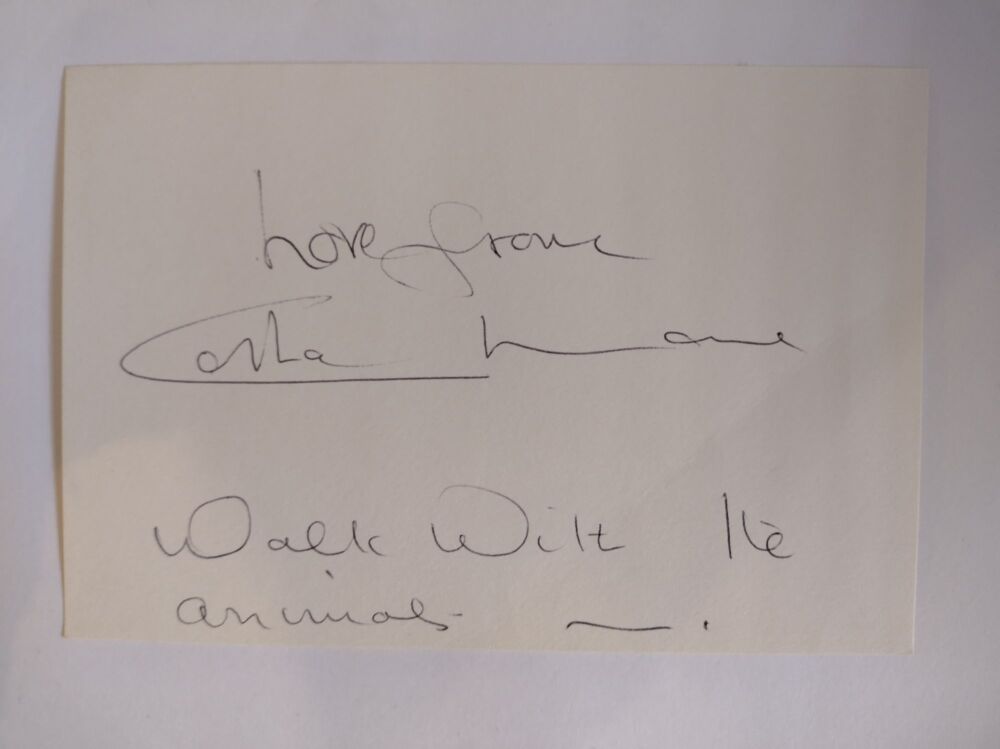 Love from
Carla Lane
Walk With the
animals — .